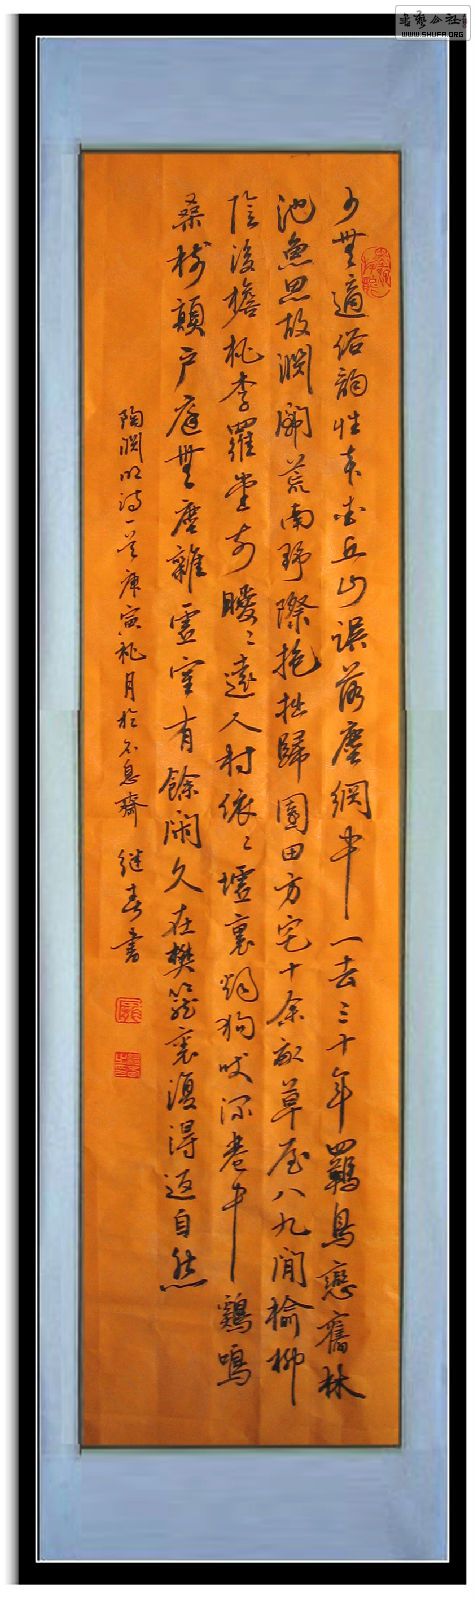 少無適俗韵性本爱丘山誤落塵網中一去三十年羈鳥戀舊林
池魚思故渊開荒南野際抱拙歸園田方宅十余畝草屋八九間榆柳
陰後檐桃李羅堂前曖〻遠人村依〻墟裏烟狗吠深巷中鷄鳴
桑樹顛户庭無塵雜虚室有餘闲久在樊笼裏復得返自然
陶渊明诗一首庚寅桃月於不息齋 继春書
WWW.SHUFA.ORG